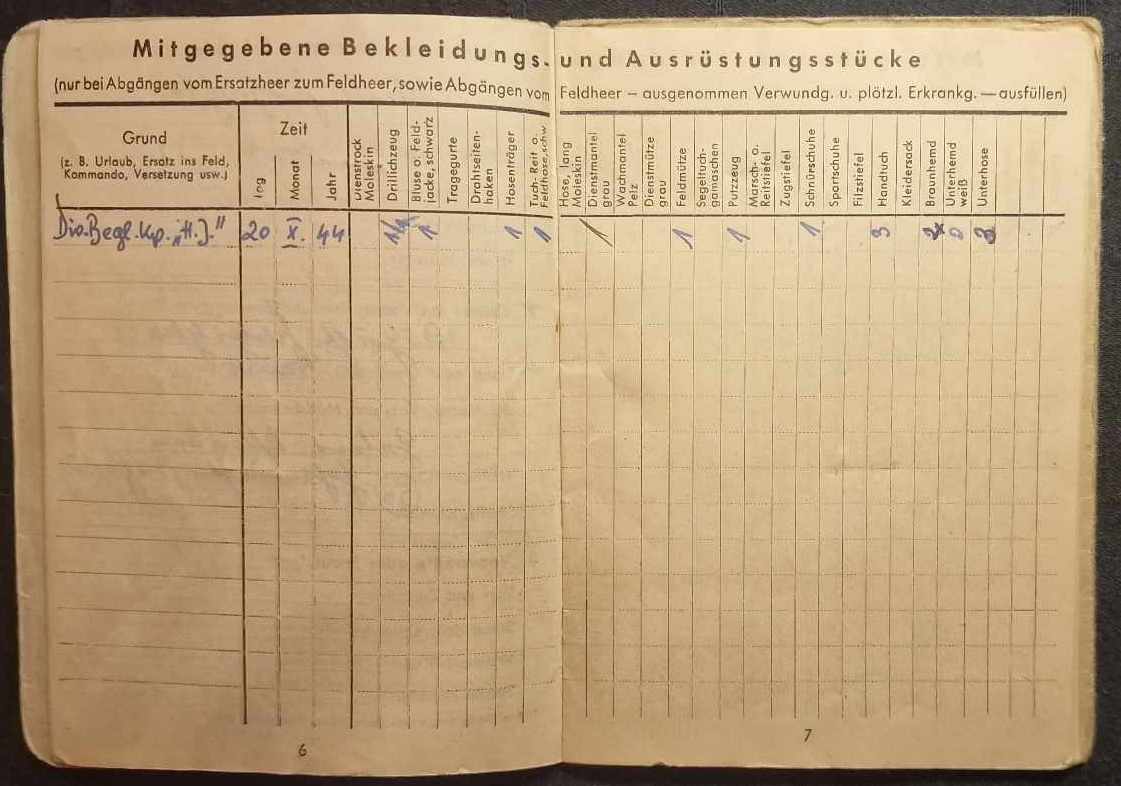 Mitgegebene Bekleidungs- und Ausrüstungsstücke
(nur bei Abgängen vom Ersatzheer zum Feldheer, sowie Abgängen vom Feldheer – ausgenommen Verwundg. u. plötzl. Erkrankg. — ausfüllen)
Grund
(z. B. Urlaub, Ersatz ins Feld,
Kommando, Versetzung usw.)
Zeit
Tag
Monat
Jahr
Dienstrock
Moleskin
Drillichzeug
Bluse o. Feld-
jacke, schwarz
Tragegurte
Drahtseiten-
haken
Hosenträger
Tuch- Reit o.
Feldhose, schw
Hose, lang
Moleskin
Dienstmantel
grau
Wachmantel
Pelz
Dienstmütze
grau
Feldmütze
Segeltuch-
gamaschen
Putzzeug
Marsch- o.
Reitstiefel
Zugstiefel
Schnürschuhe
Sportschuhe
Filzstiefel
Handtuch
Kleidersack
Braunhemd
Unterhemd
weiß
Unterhose
Div.Begl.Kp. „H.J." 20 X. 44 1/1 1 1 1 1 1 1 1 3 2 3
6
7